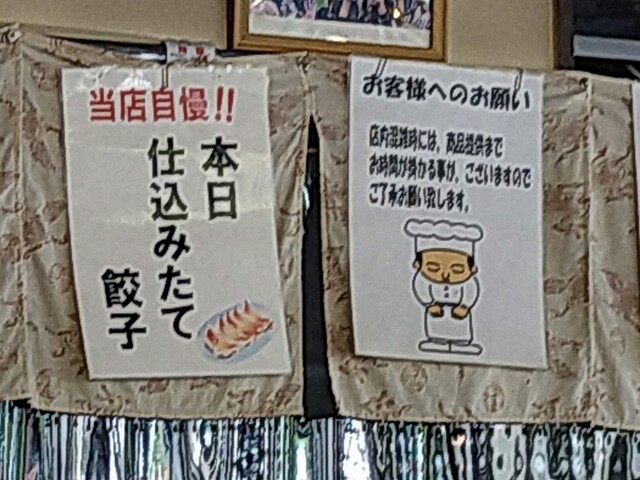 当店自慢!!
本日
仕込みたて
餃子
お客様へのお願い
店内混雑時には、商品提供まで
お時間が掛かる事が、ございますので
ご了承お願い致します。